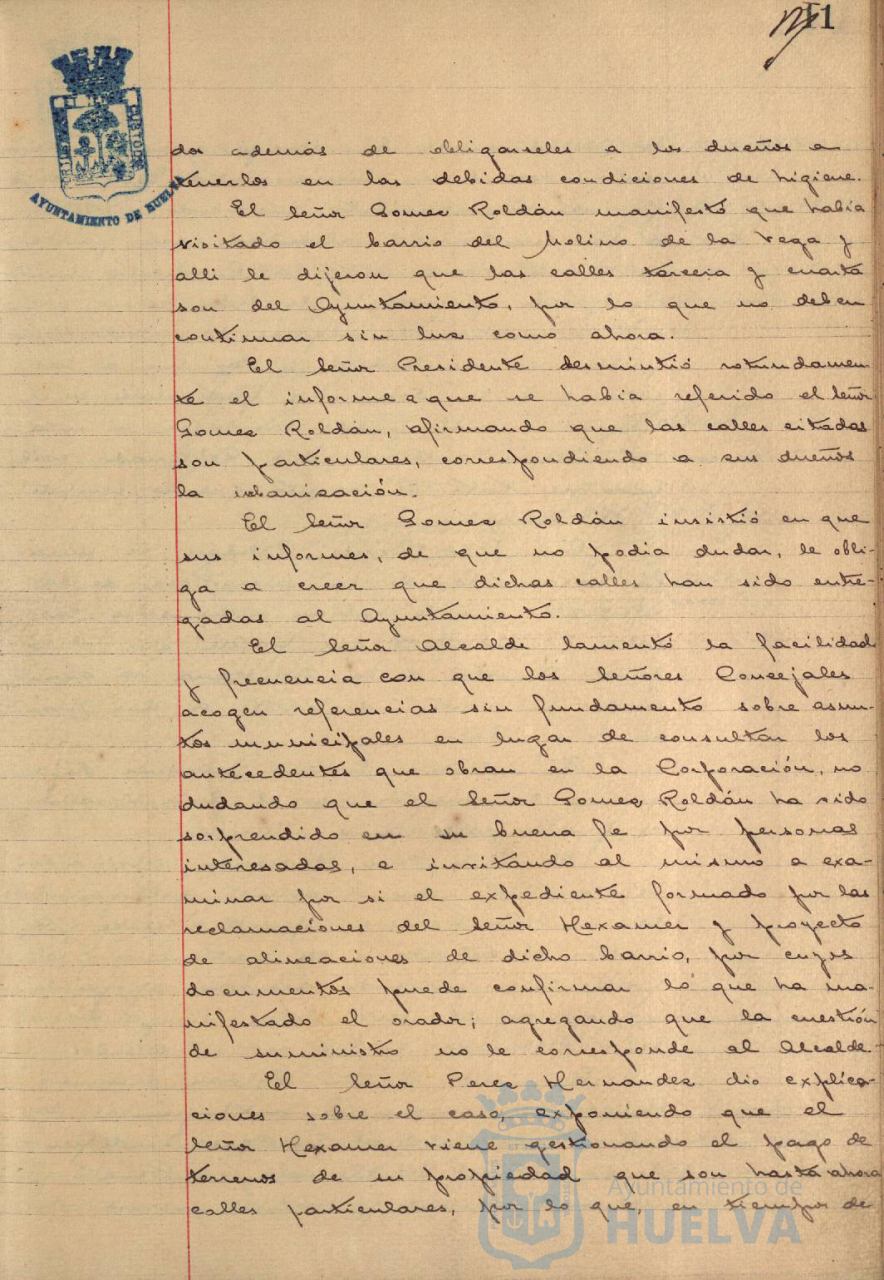 11
PORTUS MARIS
CUSTODIA
AYUNTAMIENTO DE HUELVA
dos además de obligarseles a los dueños a
tenerlos en las debidas condiciones de higiene.
El Señor Gomez Roldán manifestó que habia
visitado el barrio del Molino de la Vega y
alli le dijeron que las calles tercera y cuarta
son del Ayuntamiento, por lo que no deben
continuar sin luz como ahora.
El Señor Presidente desmintió rotundamen-
te el informe a que se habia referido el Señor
Gomez Roldán, afirmando que las calles citadas
son particulares, correspondiendo a sus dueños
la urbanización.
El Señor Gomez Roldán insistió en que
sus informes, de que no podia dudar, le obli-
ga a creer que dichas calles han sido entre-
gadas al Ayuntamiento.
El Señor Alcalde lamentó la facilidad
y frecuencia con que los Señores Concejales
acogen referencias sin fundamento sobre asun-
tos municipales en lugar de consultar los
antecedentes que obran en la Corporación, no
dudando que el Señor Gomez Roldán ha sido
sorprendido en su buena fe por personas
interesadas, e invitando al mismo a exa-
minar por si el expediente formado por las
reclamaciones del Señor Hexamer y proyecto
de alineaciones de dicho barrio, por cuyos
documentos puede confirmar lo que ha ma-
nifestado el orador; agregando que la cuestión
de suministro no le corresponde al Alcalde.
El Señor Perez Hernandez dio explica-
ciones sobre el caso, exponiendo que el
Señor Hexamer viene gestionando el pago de
terrenos de su propiedad que son hasta ahora
calles particulares, por lo que, en tiempos de
Ayuntamiento de
HUELVA